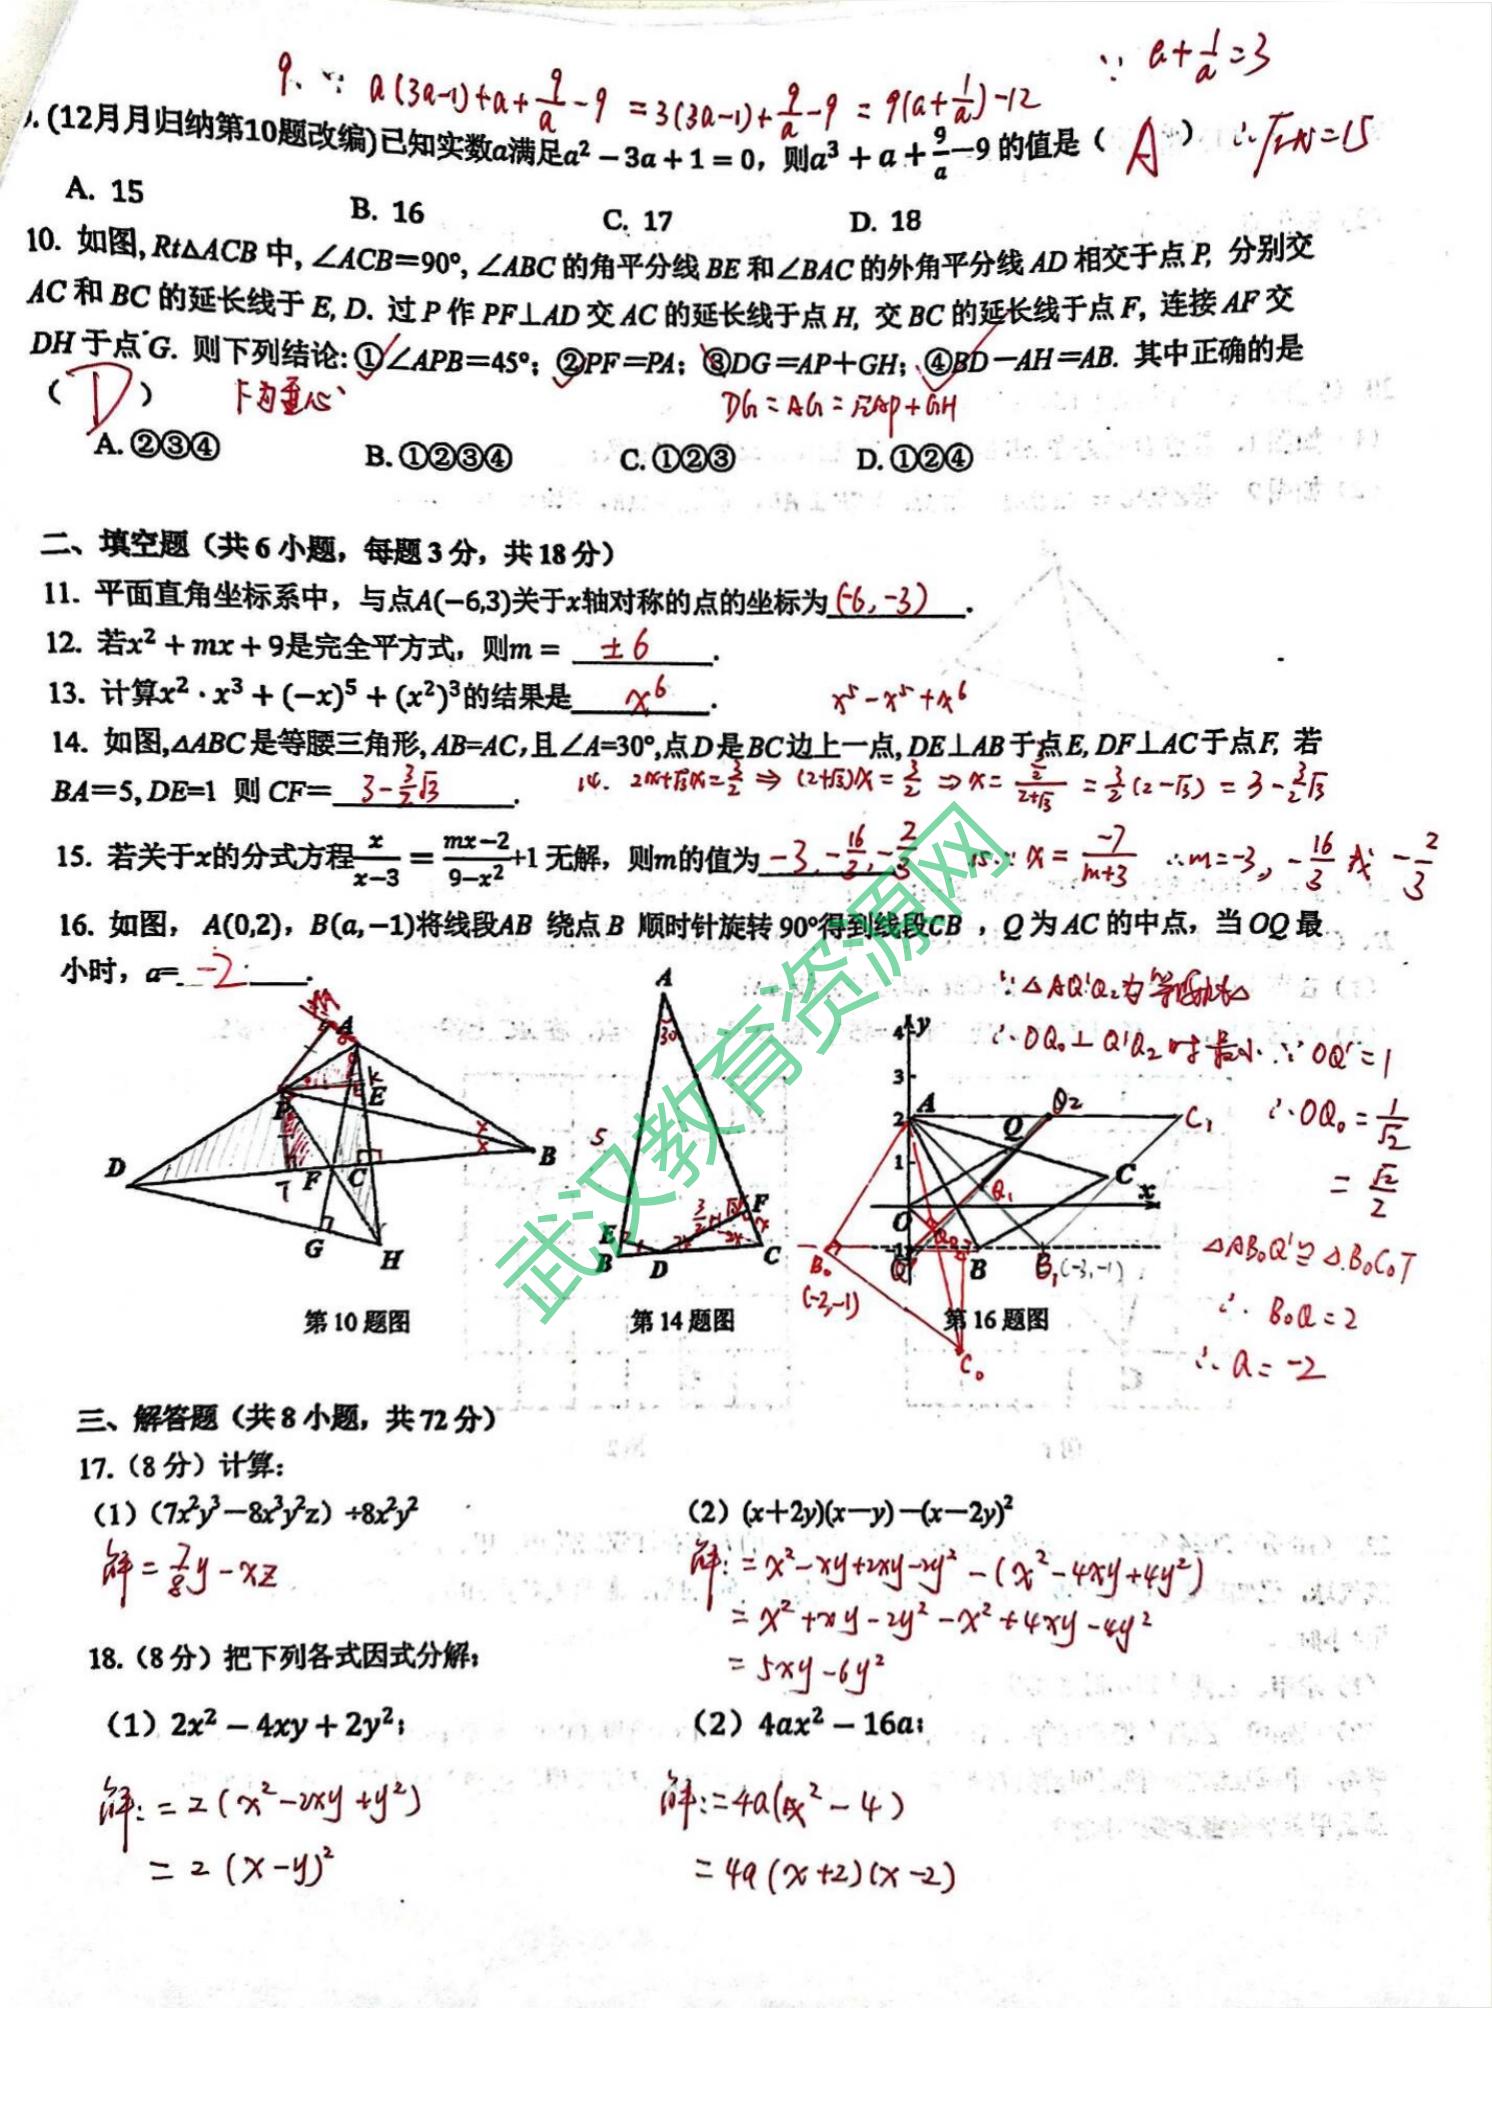 9. ∵ a(3a-1)+a+9/a-9 = 3(3a-1)+9/a-9 = 9(a+1/a)-12
∵ a+1/a=3
.(12月月归纳第10题改编)已知实数a满足a²−3a+1=0，则a³+a+9/a−9 的值是（ A ）
=15
A. 15 B. 16 C. 17 D. 18
10. 如图, Rt△ACB 中, ∠ACB=90°, ∠ABC 的角平分线 BE 和∠BAC 的外角平分线 AD 相交于点 P, 分别交
AC 和 BC 的延长线于 E, D. 过 P 作 PF⊥AD 交 AC 的延长线于点 H, 交 BC 的延长线于点 F, 连接 AF 交
DH 于点 G. 则下列结论: ①∠APB=45°; ②PF=PA; ③DG=AP+GH; ④BD−AH=AB. 其中正确的是
（ D ）
F为垂心
DG=AG=√2AP+GH
A. ②③④ B. ①②③④ C. ①②③ D. ①②④
二、填空题（共 6 小题，每题 3 分，共 18 分）
11. 平面直角坐标系中，与点A(−6,3)关于x轴对称的点的坐标为(-6,-3).
12. 若x²+mx+9是完全平方式，则m= ±6.
13. 计算x²·x³+(−x)⁵+(x²)³的结果是 x⁶.
x⁵-x⁵+x⁶
14. 如图,△ABC 是等腰三角形, AB=AC,且∠A=30°,点 D 是 BC 边上一点, DE⊥AB 于点 E, DF⊥AC 于点 F, 若
BA=5, DE=1 则 CF= 3-3/2√3.
14. 2x+√3x=3/2 ⇒ (2+√3)x=3/2 ⇒ x=(3/2)/(2+√3) = 3/2(2-√3) = 3-3/2√3
15. 若关于x的分式方程x/(x−3)=(mx−2)/(9−x²)+1 无解，则m的值为 -3, -16/3, -2/3
15. ∵ x=-7/(m+3) ∴m=-3, -16/3 或 -2/3
16. 如图， A(0,2)，B(a,−1)将线段AB 绕点 B 顺时针旋转 90°得到线段CB ，Q 为 AC 的中点，当 OQ 最
小时，a= -2.
∵△AQ'Q₂为等腰Rt△
∴OQ₀⊥Q'Q₂时最小 ∵OQ'=1
∴OQ₀=1/√2
=√2/2
△AB₀Q'≌△B₀C₀T
∴B₀Q=2
∴a=-2
A
P
E
K
D
T
F
C
B
G
H
第 10 题图
A
30
5
E
B
D
F
C
第 14 题图
y
4
3
2
1
-1
A
Q
Q₂
C₁
C
x
O
Q₁
Q₀
B₀
(-2,-1)
Q'
B
B₁(-3,-1)
C₀
第 16 题图
武汉教育资源网
三、解答题（共 8 小题，共 72 分）
17.（8 分）计算：
（1）（7x²y³−8x³y²z）÷8x²y² （2）(x+2y)(x−y)−(x−2y)²
解=7/8y-xz
解:=x²-xy+2xy-2y²-(x²-4xy+4y²)
=x²+xy-2y²-x²+4xy-4y²
=5xy-6y²
18.（8 分）把下列各式因式分解；
（1）2x²−4xy+2y²； （2）4ax²−16a；
解:=2(x²-2xy+y²)
=2(x-y)²
解:=4a(x²-4)
=4a(x+2)(x-2)